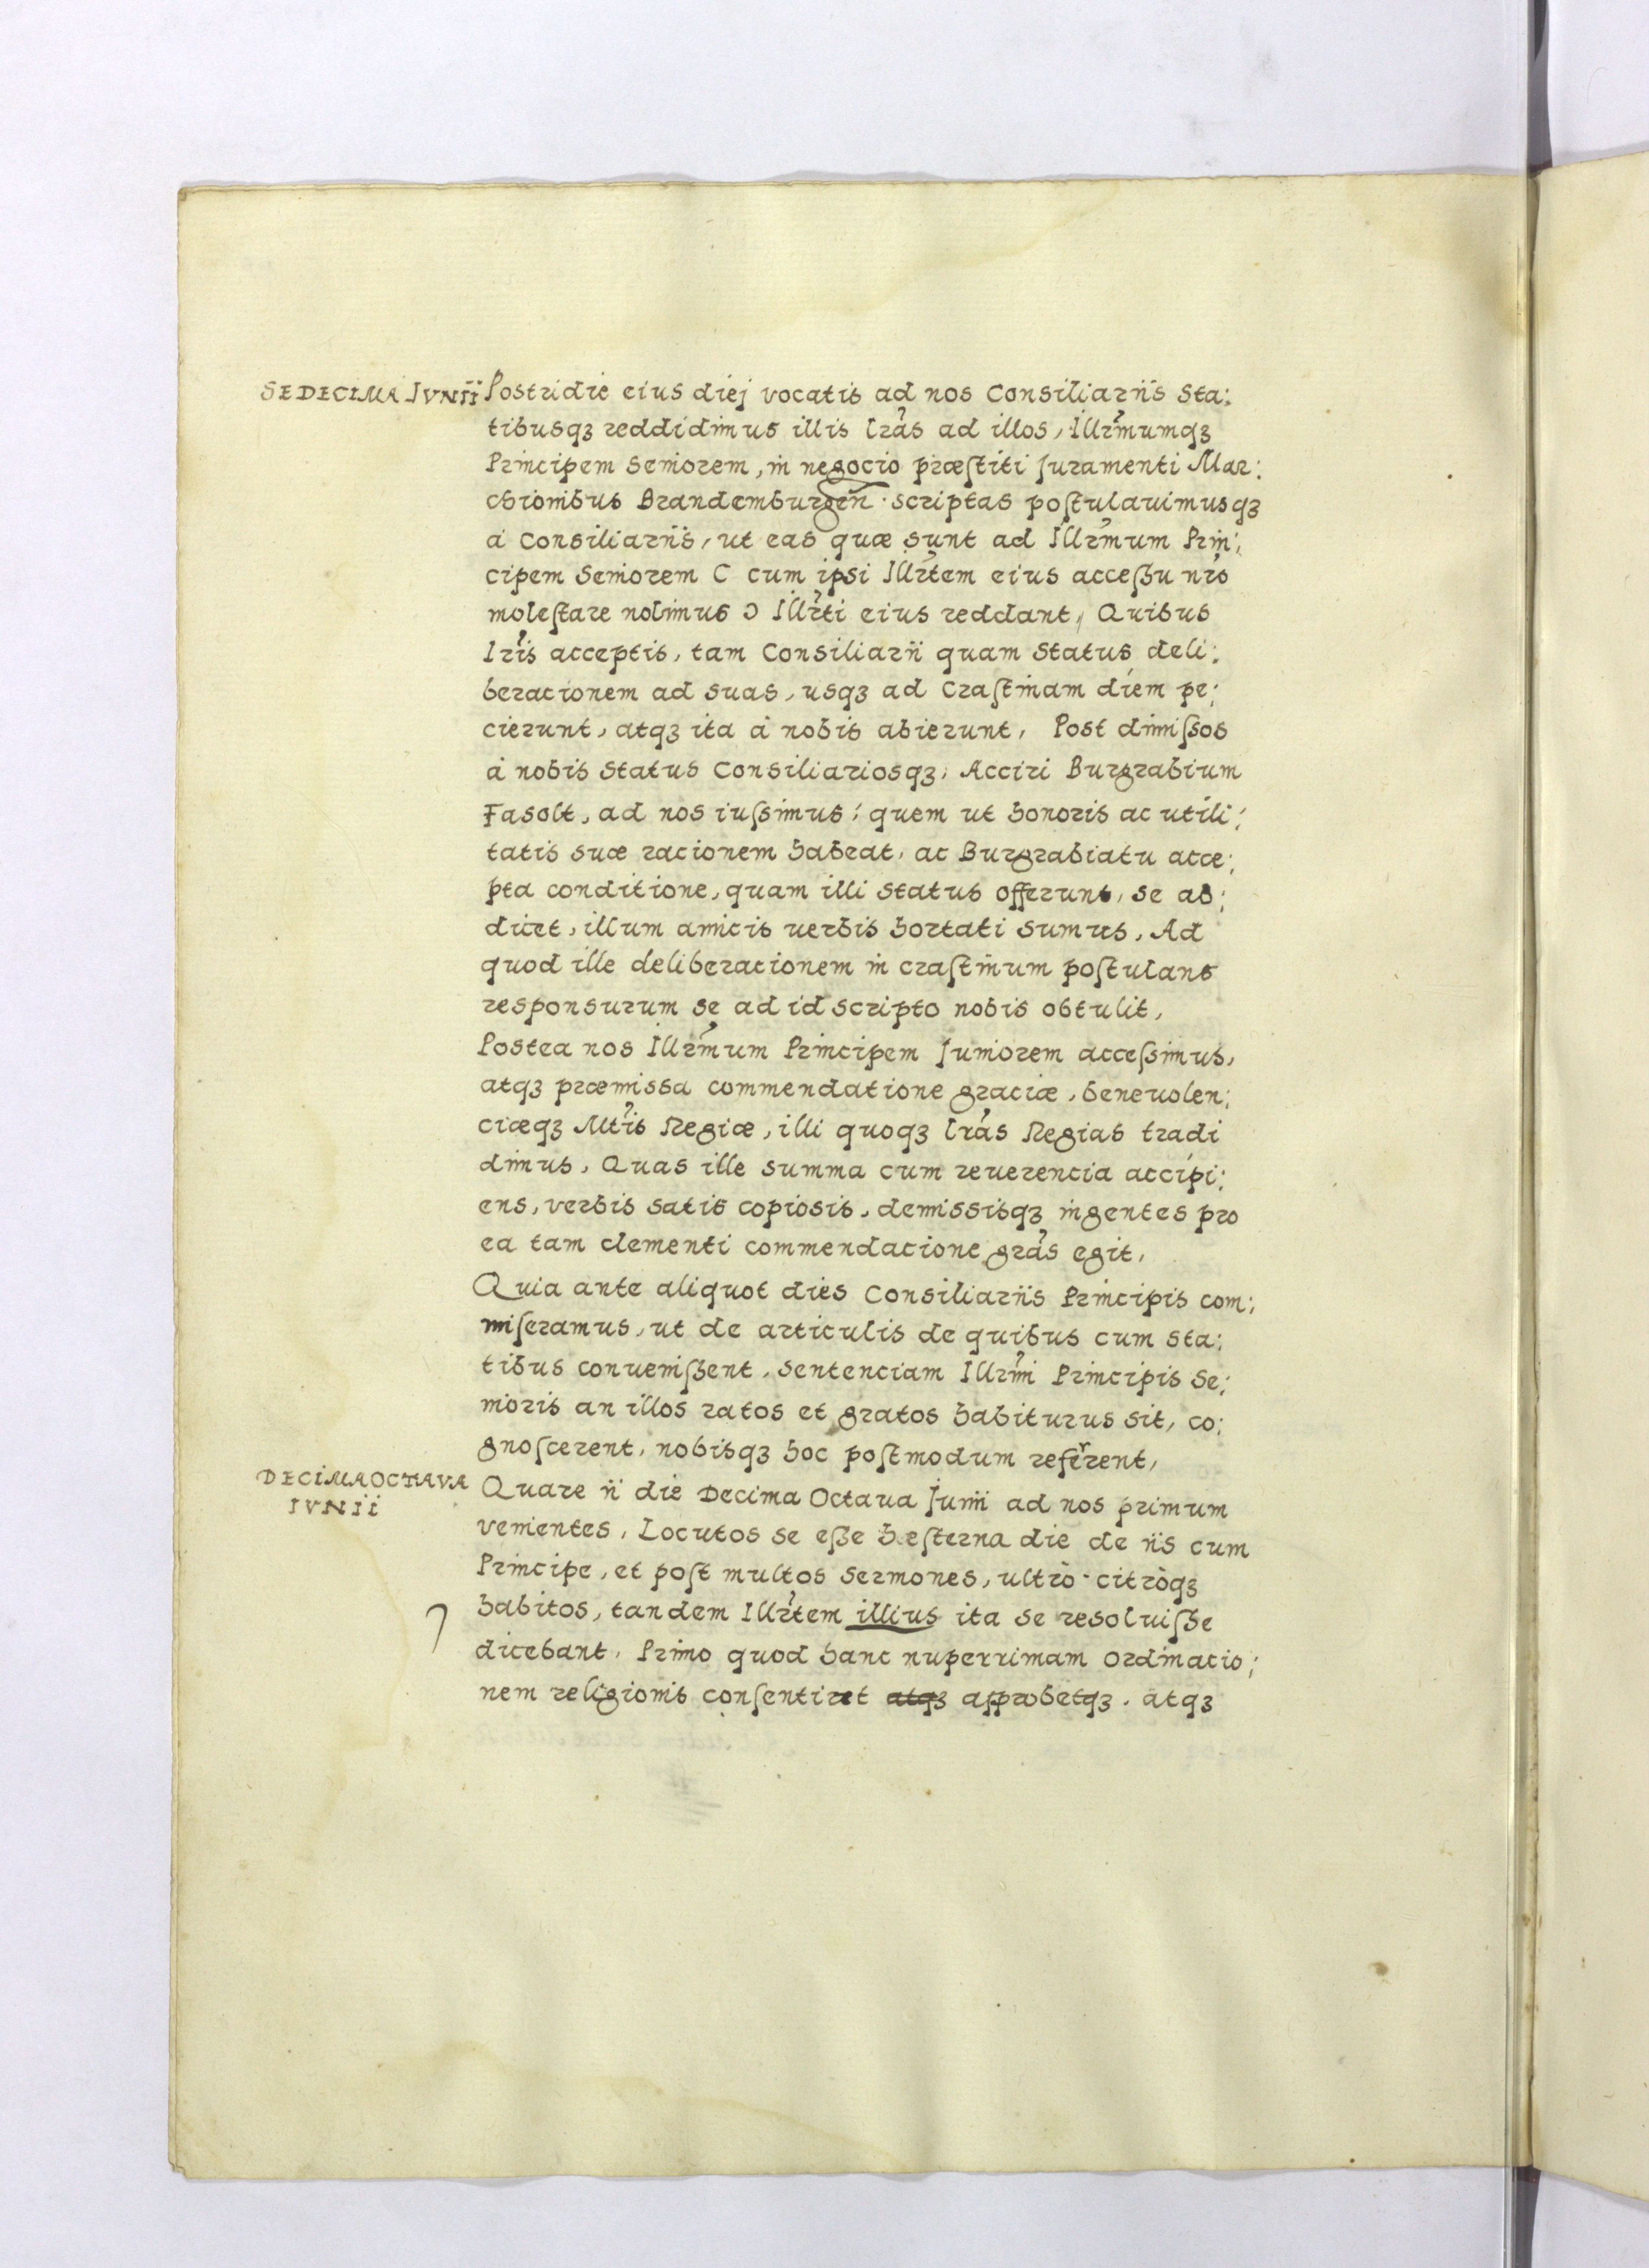 SEDECIMA IVNII
Postridie eius diej vocatis ad nos Consiliariis Sta:
tibusqꝫ reddidimus illis lras ad illos, Illrmumqꝫ
Principem Seniorem, in negocio præſtiti Juramenti Mar:
chionibus Brandemburgeñ. scriptas poſtulauimusqꝫ
à Consiliariis, ut eas quæ sunt ad Illrmum Prin:
cipem Seniorem C cum ipsi Illrtem eius acceſsu nro
moleſtare nolimus Ɔ Illrti eius reddant, Quibus
lris acceptis, tam Consiliarii quam Status deli:
beracionem ad suas, usqꝫ ad Craſtinam diem pe:
cierunt, atqꝫ ita à nobis abierunt, Post dimiſsos
à nobis Status Consiliariosqꝫ, Acciri Burgrabium
Fasolt, ad nos iuſsimus: quem ut honoris ac utili:
tatis suæ racionem habeat, ac Burgrabiatu acce:
pta conditione, quam illi Status offerunt, se ab:
dicet, illum amicis uerbis hortati sumus, Ad
quod ille deliberacionem in craſtinum poſtulans
responsurum se ad id scripto nobis obtulit,
Postea nos Illrmum Principem Juniorem acceſsimus,
atqꝫ præmissa commendatione graciæ, beneuolen:
ciæqꝫ Mtis Regiæ, illi quoqꝫ lras Regias tradi
dimus, Quas ille summa cum reuerencia accipi:
ens, verbis satis copiosis, demissisqꝫ ingentes pro
ea tam clementi commendacione gras egit,
Quia ante aliquot dies Consiliariis Principis com:
miſeramus, ut de articulis de quibus cum sta:
tibus conueniſsent, sentenciam Illrmi Principis Se:
nioris an illos ratos et gratos habiturus sit, co:
gnoſcerent, nobisqꝫ hoc poſtmodum referrent,
DECIMA OCTAVA
IVNII
Quare ii die Decima Octaua Junii ad nos primum
venientes, Locutos se eſse heſterna die de iis cum
Principe, et poſt multos sermones, ultrò citròqꝫ
habitos, tandem Illrtem illius ita se resoluiſse
dicebant, Primo quod hanc nuperrimam Ordinacio:
nem religionis conſentiret atqꝫ approbetqꝫ. atqꝫ